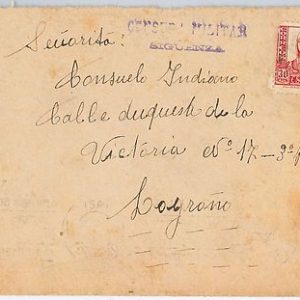 CENSURA MILITAR
SIGÜENZA
Señorita:
Consuelo Indiano
Calle duquesh de la
Victoria Nº 17 - 3º
Logroño